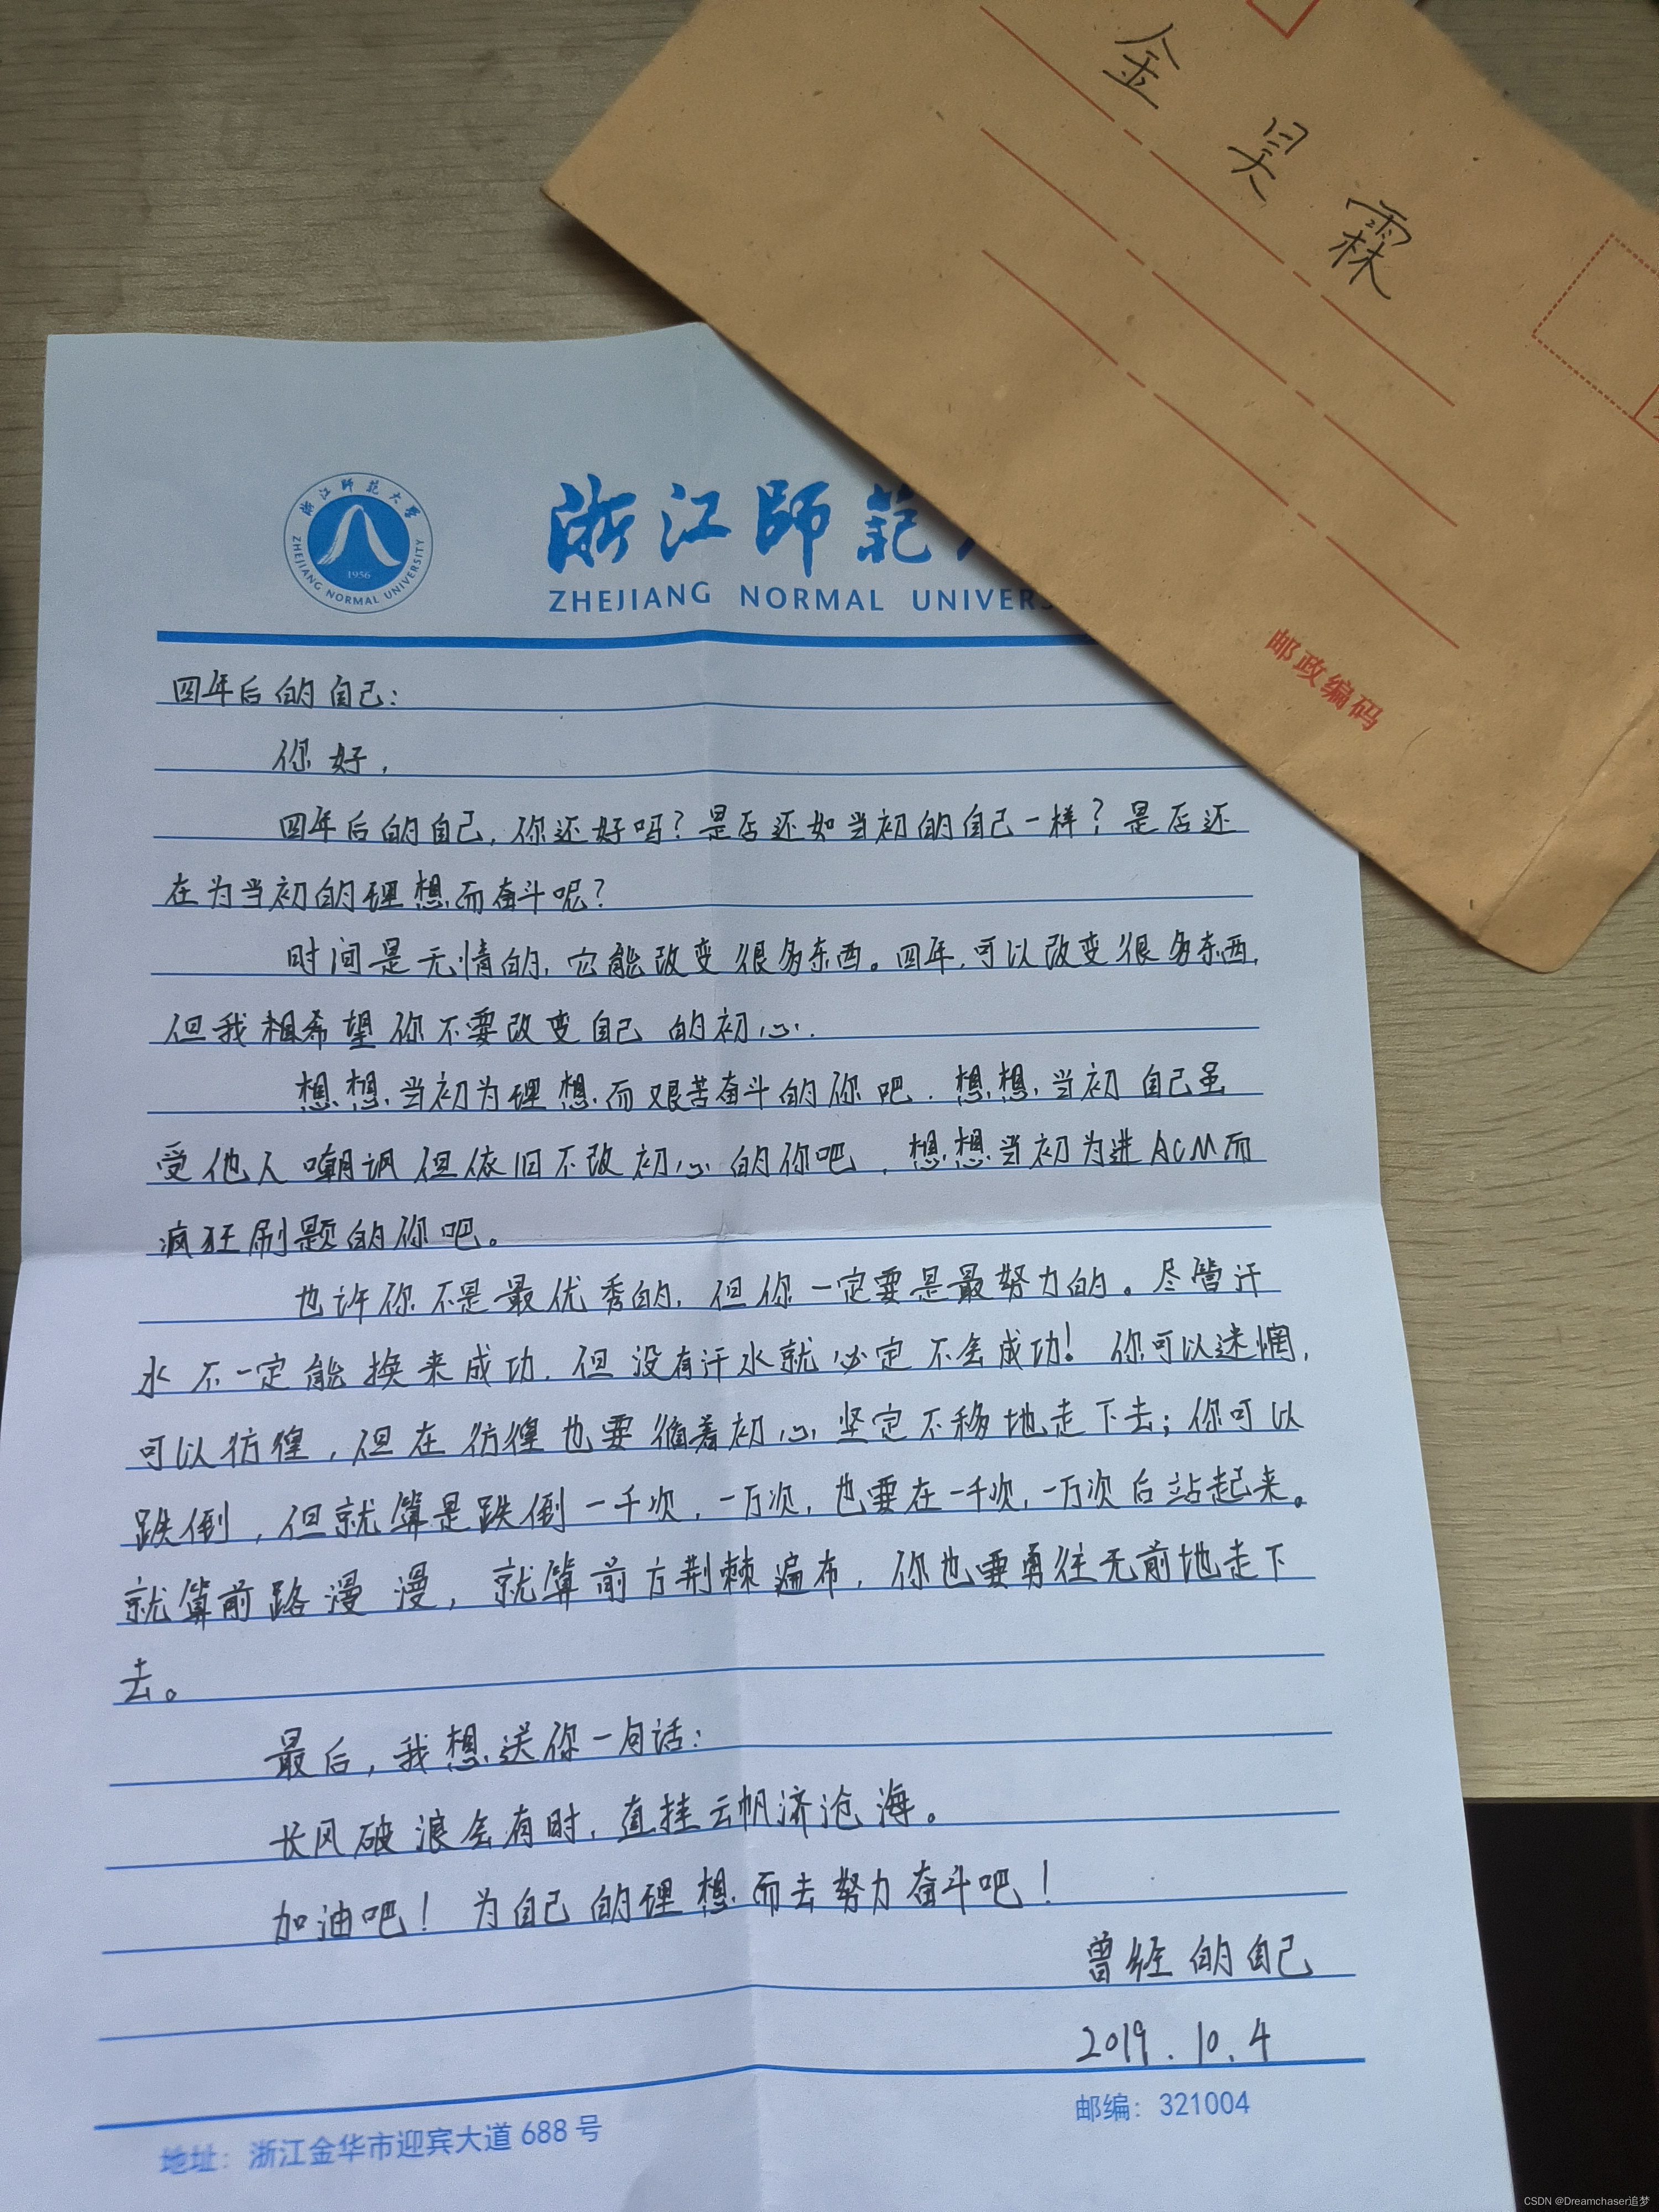 金昊霖
邮政编码
浙江師範大學
ZHEJIANG NORMAL UNIVERSITY
1956
浙江師範
ZHEJIANG NORMAL UNIVERS
四年后的自己:
你好,
四年后的自己,你还好吗?是否还如当初的自己一样?是否还
在为当初的理想而奋斗呢?
时间是无情的,它能改变很多东西。四年,可以改变很多东西,
但我相希望你不要改变自己的初心.
想想当初为理想而艰苦奋斗的你吧.想想当初自己虽
受他人嘲讽但依旧不改初心的你吧,想想当初为进ACM而
疯狂刷题的你吧。
也许你不是最优秀的,但你一定要是最努力的。尽管汗
水不一定能换来成功,但没有汗水就必定不会成功!你可以迷惘,
可以彷徨,但在彷徨也要循着初心坚定不移地走下去;你可以
跌倒,但就算是跌倒一千次,一万次,也要在一千次,一万次后站起来。
就算前路漫漫,就算前方荆棘遍布,你也要勇往无前地走下
去。
最后,我想送你一句话:
长风破浪会有时,直挂云帆济沧海。
加油吧!为自己的理想而去努力奋斗吧!
曾经的自己
2019.10.4
邮编:321004
地址:浙江金华市迎宾大道688号
CSDN @Dreamchaser追梦